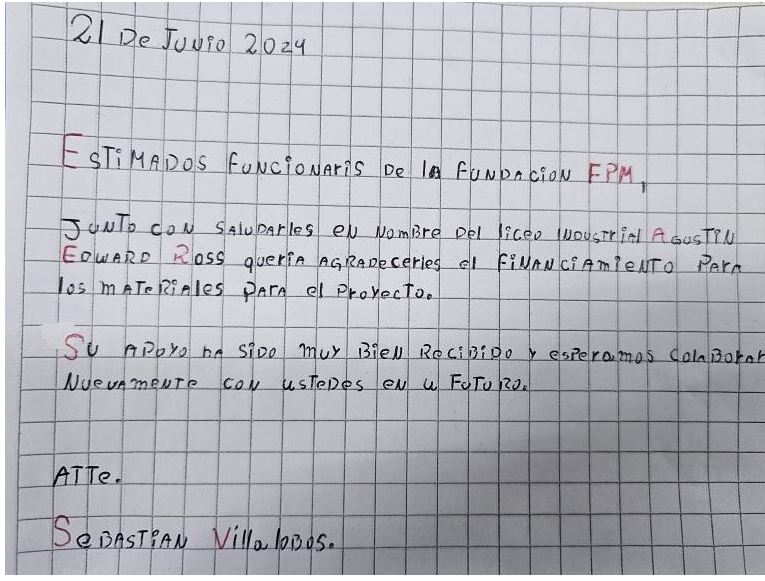 21 De Junio 2024
ESTIMADOS FUNCIONARIS De la FUNDACION FPM,
JUNTO CON SALUDARLES EN NOMBRE DEL liceo INDUSTRIAL AGUSTIN
EDWARD ROSS querIA AGRADecerles el FINANCIAMIENTO PARA
los MATERIALES PARA el ProyecTo.
SU APOYO HA SIDO MUY BIEN RECIBIDO Y esperamos COLABORAR
NUEVAMENTE CON USTEDES EN U FUTURO.
ATTe.
SEBASTIAN VillaloBos.